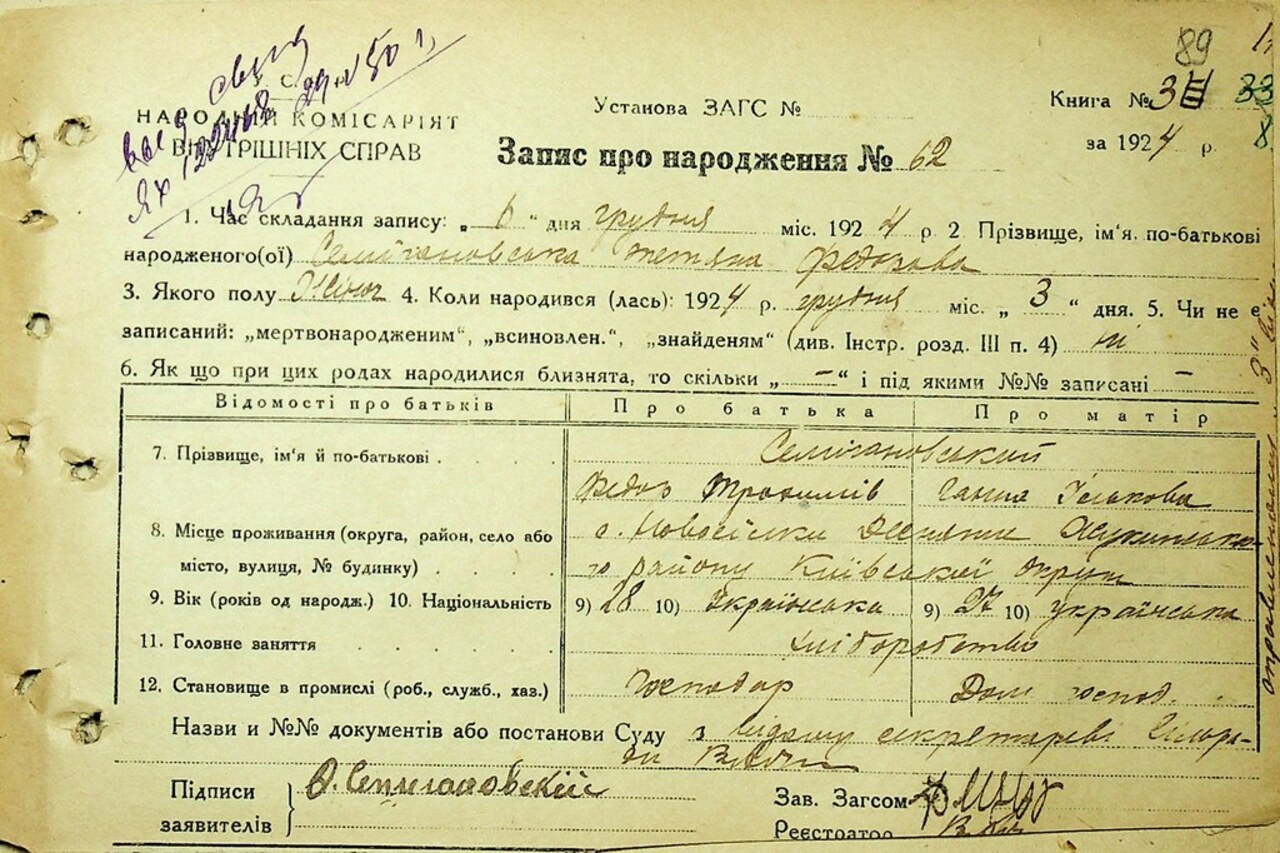 89
У.С.
НАРОДНИЙ КОМІСАРІЯТ
ВНУТРІШНІХ СПРАВ
Установа ЗАГС №
Книга № 3 33
Запис про народження № 62
за 1924 р. 8
1. Час складання запису: „6“ дня грудня міс. 1924 р 2. Прізвище, ім'я. по-батькові
народженого(ої) Семігановська Тетяна Федорова
3. Якого полу Жіноч 4. Коли народився (лась): 1924 р. грудня міс. „3“ дня. 5. Чи не є
записаний: „мертвонародженим“, „всиновлен.“, „знайденям“ (див. Інстр. розд. III п. 4) ні
6. Як що при цих родах народилися близнята, то скільки „—“ і під якими №№ записані —
Відомості про батьків Про батька Про матір
7. Прізвище, ім'я й по-батькові . Семігановський
Федор Трохимів Ганна Ількова
8. Місце проживання (округа, район, село або с. Новосілки
місто, вулиця, № будинку) . . . . району Київської округи
9. Вік (років од народж.) 10. Національність 9) 28 10) Українська 9) 27 10) українська
11. Головне заняття . . . . . хліборобство
12. Становище в промислі (роб., служб., хаз.) Господар Дом. господ.
Назви и №№ документів або постанови Суду з відому секретареві Сільра-
ди
Підписи
заявителів
Зав. Загсом
Реєстратор